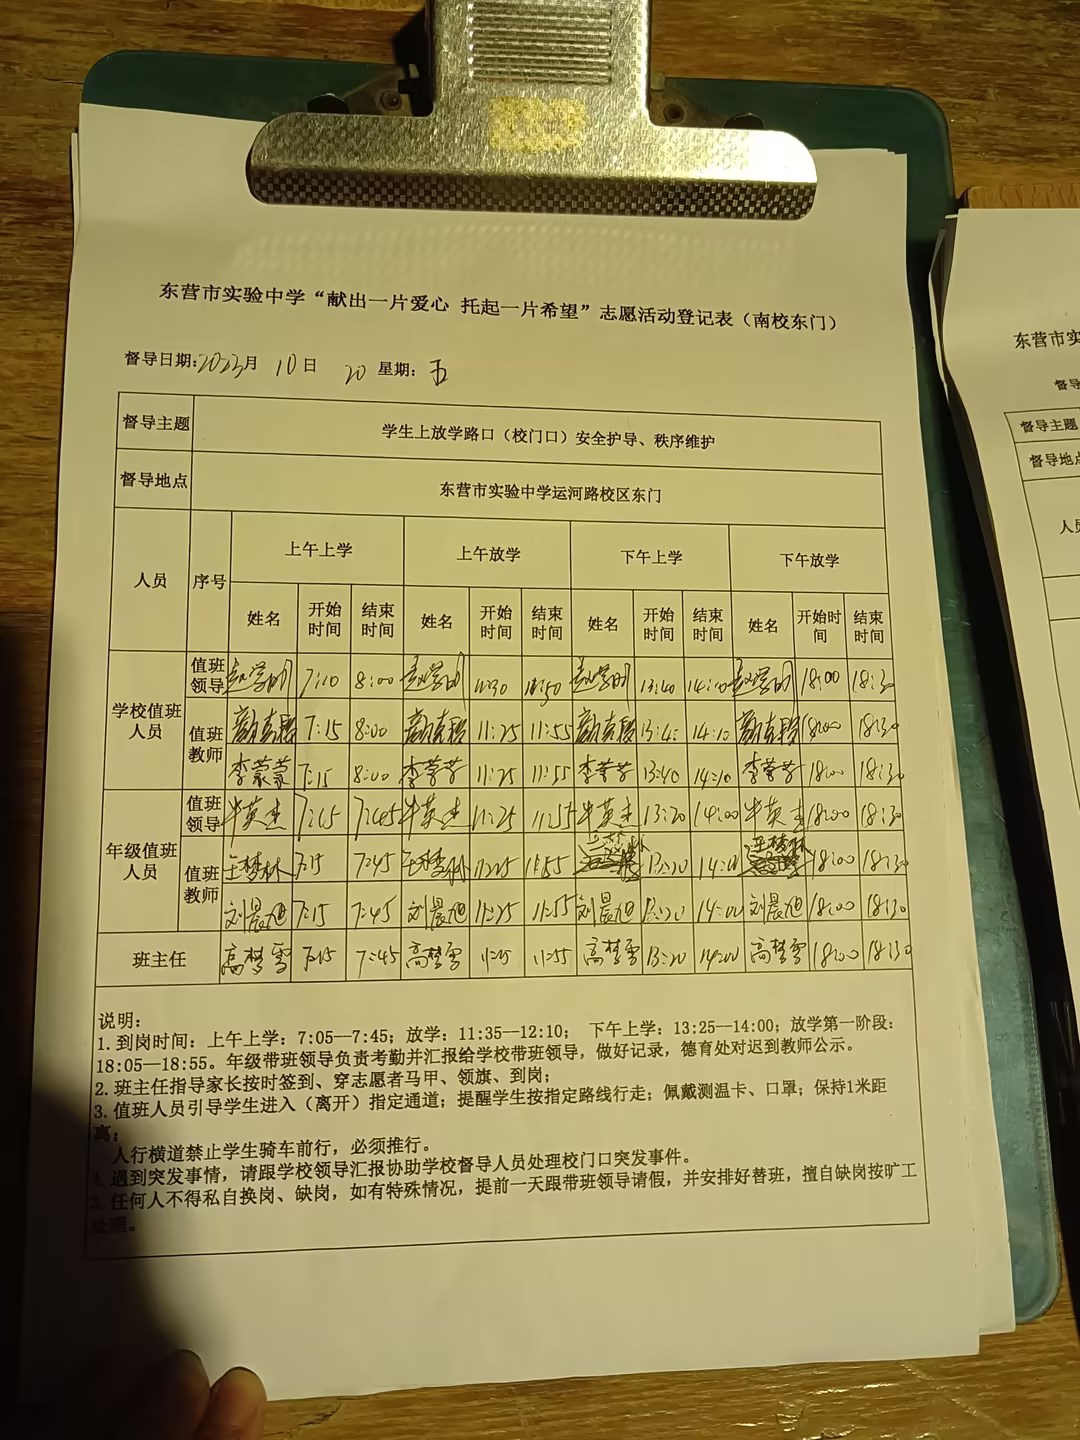 东营市实验中学“献出一片爱心 托起一片希望”志愿活动登记表（南校东门）
督导日期:2023月 10日 20 星期: 五
督导主题 学生上放学路口（校门口）安全护导、秩序维护
督导地点 东营市实验中学运河路校区东门
人员 序号 上午上学 上午放学 下午上学 下午放学
姓名 开始时间 结束时间 姓名 开始时间 结束时间 姓名 开始时间 结束时间 姓名 开始时间 结束时间
学校值班人员 值班领导 赵学明 7:10 8:00 赵学明 11:30 11:50 赵学明 13:40 14:10 赵学明 18:00 18:30
值班教师 7:15 8:00 11:25 11:55 13:40 14:10 18:00 18:30
李蒙蒙 7:15 8:00 李蒙蒙 11:25 11:55 李蒙蒙 13:40 14:10 李蒙蒙 18:00 18:30
年级值班人员 值班领导 牛英杰 7:15 7:45 牛英杰 11:25 11:55 牛英杰 13:20 14:00 牛英杰 18:00 18:30
值班教师 王梦林 7:15 7:45 王梦林 11:25 11:55 王梦林 13:20 14:00 王梦林 18:00 18:30
刘晨旭 7:15 7:45 刘晨旭 11:25 11:55 刘晨旭 13:20 14:00 刘晨旭 18:00 18:30
班主任 高梦雪 7:15 7:45 高梦雪 11:25 11:55 高梦雪 13:20 14:00 高梦雪 18:00 18:30
说明:
1. 到岗时间: 上午上学: 7:05—7:45; 放学: 11:35—12:10; 下午上学: 13:25—14:00; 放学第一阶段:
18:05—18:55。年级带班领导负责考勤并汇报给学校带班领导，做好记录，德育处对迟到教师公示。
2. 班主任指导家长按时签到、穿志愿者马甲、领旗、到岗;
3. 值班人员引导学生进入（离开）指定通道; 提醒学生按指定路线行走; 佩戴测温卡、口罩; 保持1米距
离;
人行横道禁止学生骑车前行，必须推行。
遇到突发事情，请跟学校领导汇报协助学校督导人员处理校门口突发事件。
任何人不得私自换岗、缺岗，如有特殊情况，提前一天跟带班领导请假，并安排好替班，擅自缺岗按旷工
处理。
东营市实
督导主题
督导地点